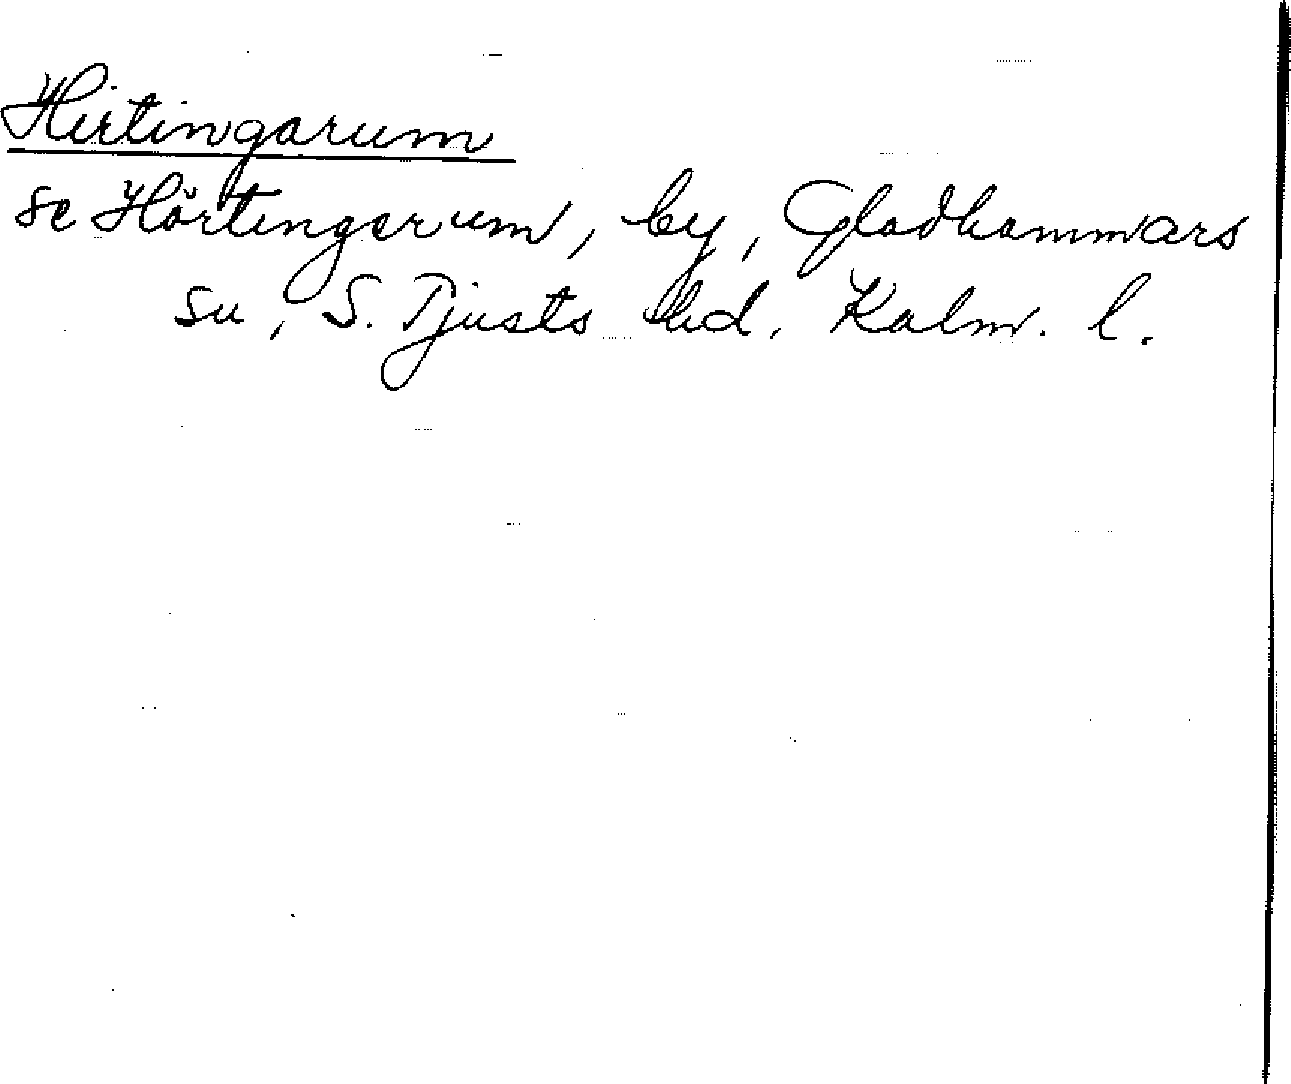 Hirtingarum
se Hörtingerum, by, Gladhammars
sn, S. Tjusts hd. Kalm. l.